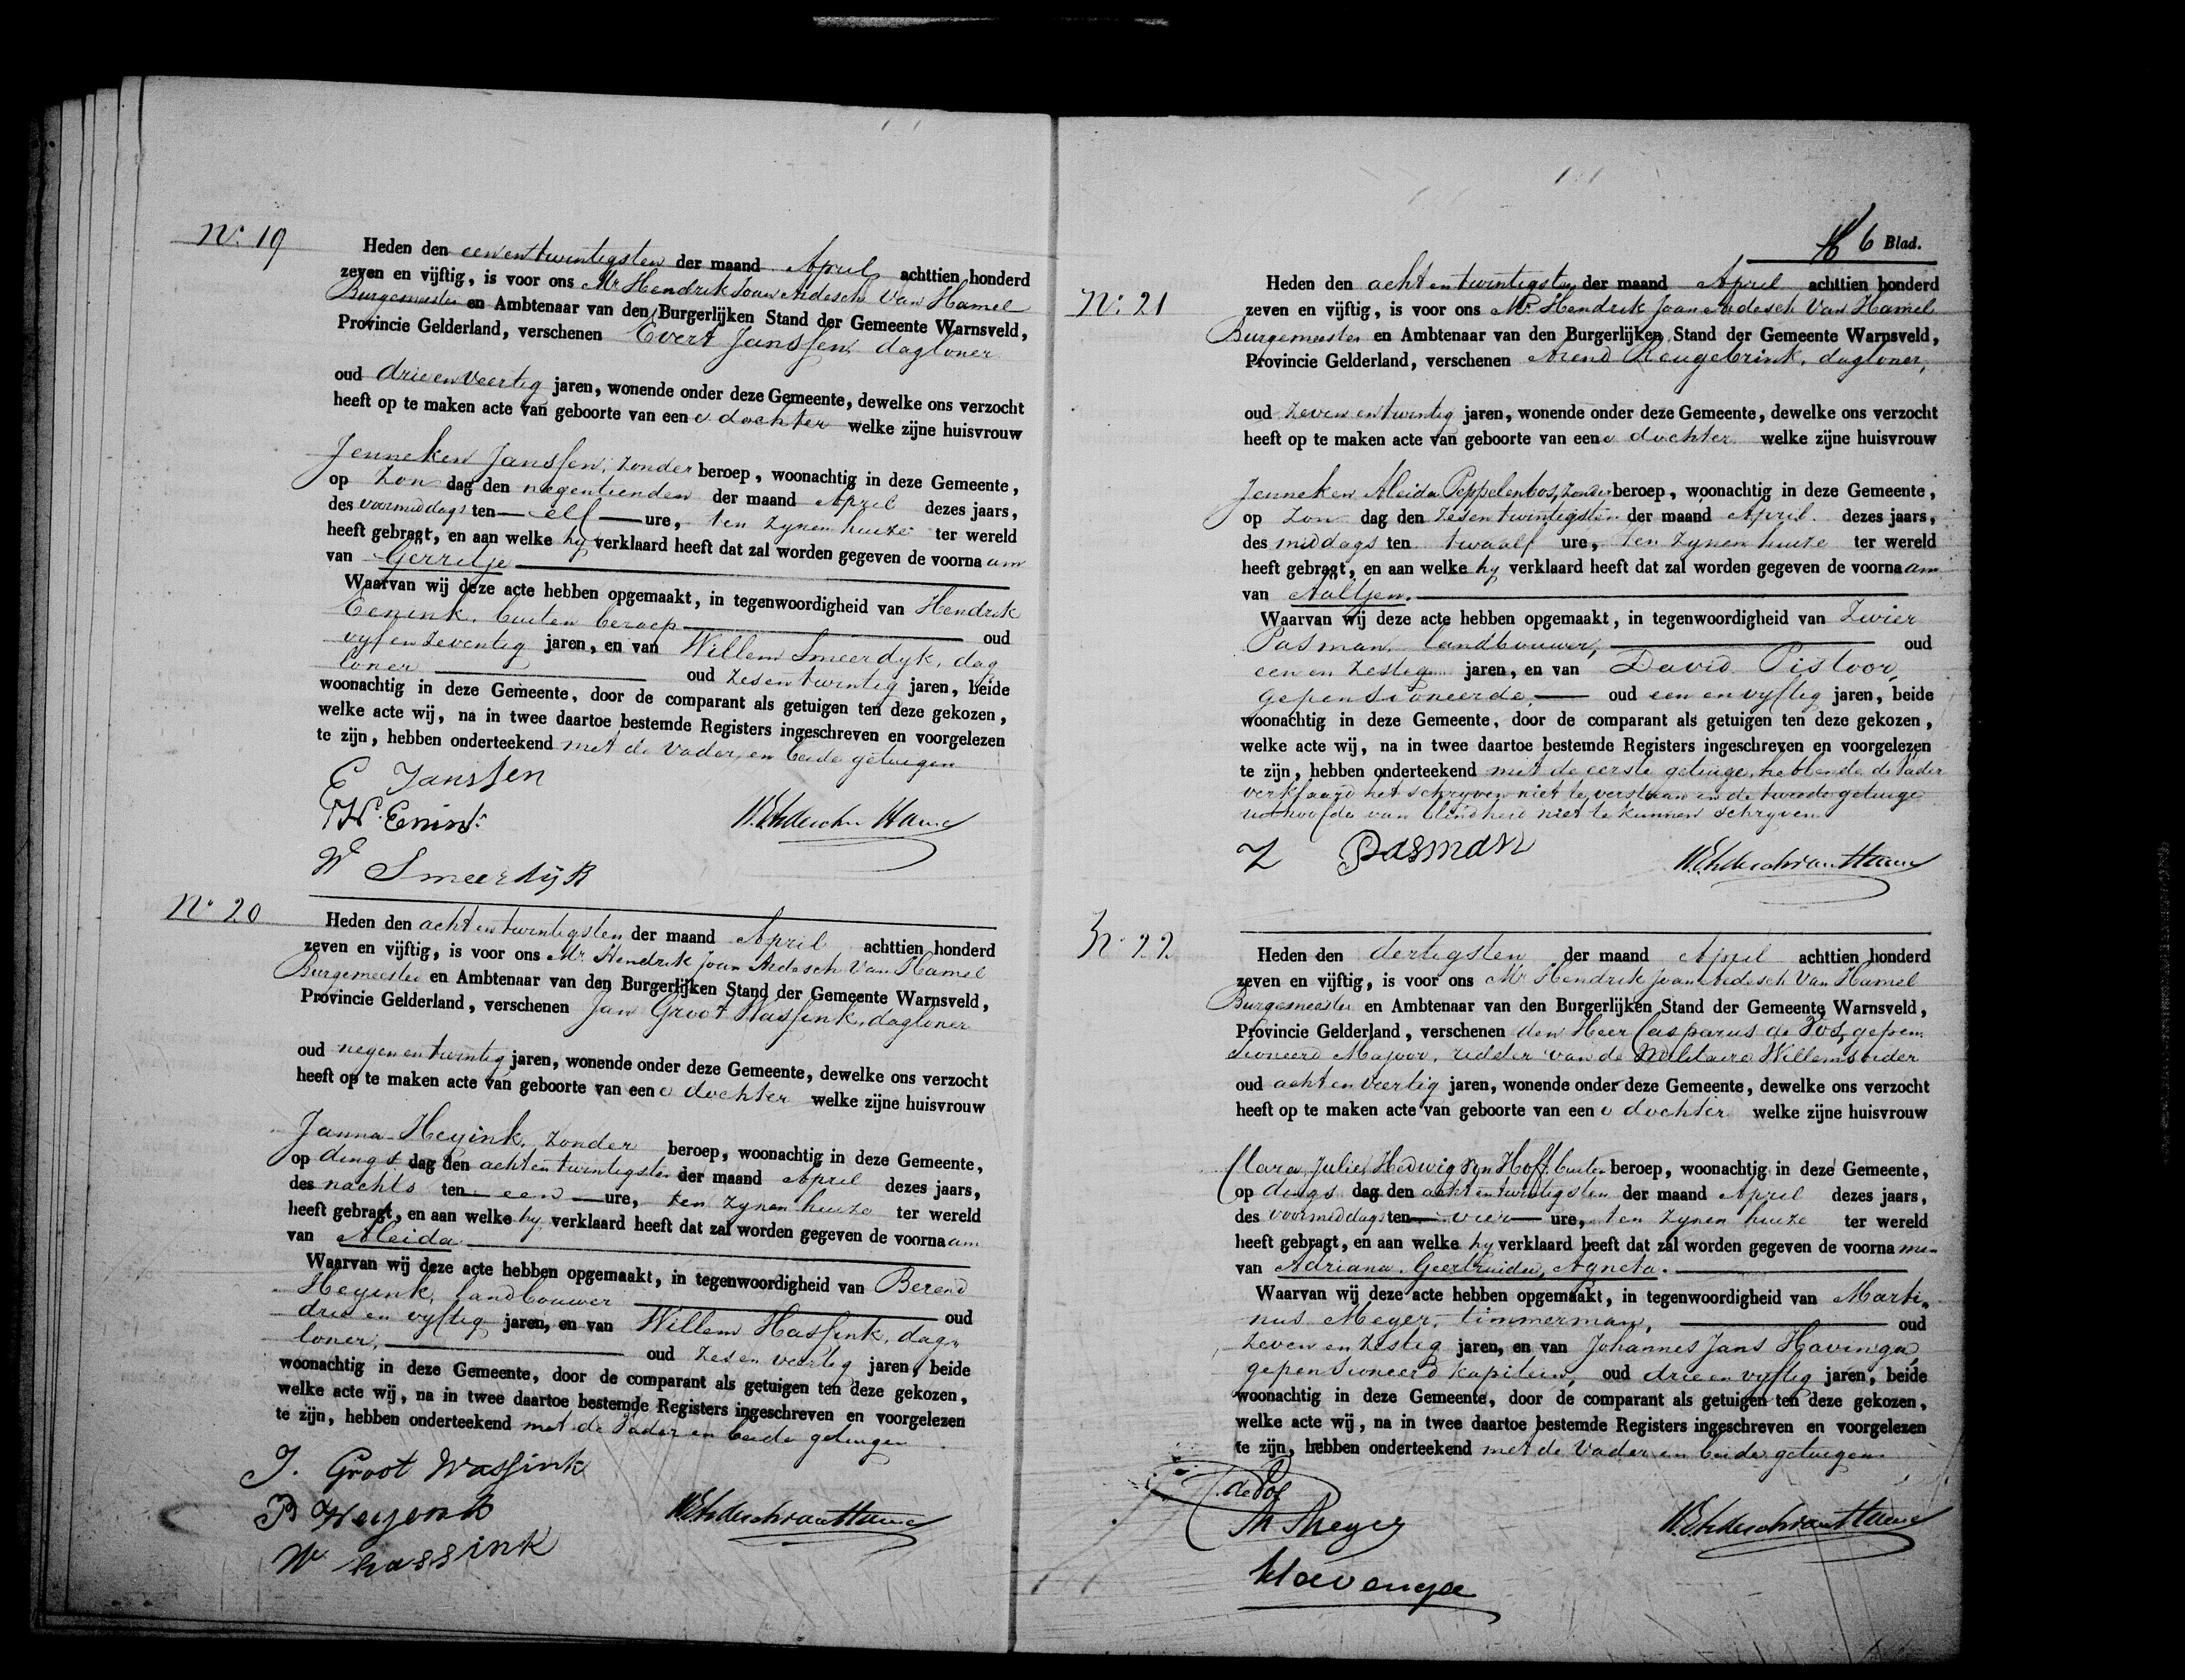 No. 19
Heden den een en twintigsten der maand April achttien honderd
zeven en vijftig, is voor ons Mr Hendrik Joan Ardesch Van Hamel
Burgemeester en Ambtenaar van den Burgerlijken Stand der Gemeente Warnsveld,
Provincie Gelderland, verschenen Evert Janssen, dagloner
oud drie en veertig jaren, wonende onder deze Gemeente, dewelke ons verzocht
heeft op te maken acte van geboorte van een e dochter welke zijne huisvrouw
Jenneken Janssen, zonder beroep, woonachtig in deze Gemeente,
op Zon dag den negentienden der maand April dezes jaars,
des voormiddags ten elf ure, ten zynen huize ter wereld
heeft gebragt, en aan welke hy verklaard heeft dat zal worden gegeven de voorna am
van Gerritje
Waarvan wij deze acte hebben opgemaakt, in tegenwoordigheid van Hendrik
Eenink, buiten beroep oud
vyf en zeventig jaren, en van Willem Smeerdyk, dag
loner oud zes en twintig jaren, beide
woonachtig in deze Gemeente, door de comparant als getuigen ten deze gekozen,
welke acte wij, na in twee daartoe bestemde Registers ingeschreven en voorgelezen
te zijn, hebben onderteekend met de Vader en beide getuigen
E Janssen
H Enink
W Smeerdijk
No. 20
Heden den acht en twintigsten der maand April achttien honderd
zeven en vijftig, is voor ons Mr Hendrik Joan Ardesch Van Hamel
Burgemeester en Ambtenaar van den Burgerlijken Stand der Gemeente Warnsveld,
Provincie Gelderland, verschenen Jan Groot Wassink, dagloner
oud negen en twintig jaren, wonende onder deze Gemeente, dewelke ons verzocht
heeft op te maken acte van geboorte van een e dochter welke zijne huisvrouw
Janna Heyink, zonder beroep, woonachtig in deze Gemeente,
op dings dag den acht en twintigsten der maand April dezes jaars,
des nachts ten een ure, ten zynen huize ter wereld
heeft gebragt, en aan welke hy verklaard heeft dat zal worden gegeven de voorna am
van Aleida
Waarvan wij deze acte hebben opgemaakt, in tegenwoordigheid van Berend
Heyink, landbouwer oud
drie en vyftig jaren, en van Willem Hassink, dag
loner, oud zes en veertig jaren, beide
woonachtig in deze Gemeente, door de comparant als getuigen ten deze gekozen,
welke acte wij, na in twee daartoe bestemde Registers ingeschreven en voorgelezen
te zijn, hebben onderteekend met de Vader en beide getuigen
J. Groot Wassink
B Heijenk
W hassink
6 Blad.
No. 21
Heden den acht en twintigsten der maand April achttien honderd
zeven en vijftig, is voor ons Mr Hendrik Joan Ardesch Van Hamel
Burgemeester en Ambtenaar van den Burgerlijken Stand der Gemeente Warnsveld,
Provincie Gelderland, verschenen Arend Reugebrink, dagloner,
oud zeven en twintig jaren, wonende onder deze Gemeente, dewelke ons verzocht
heeft op te maken acte van geboorte van een e dochter welke zijne huisvrouw
Jenneken Aleida Peppelenbos, zonder beroep, woonachtig in deze Gemeente,
op Zon dag den zes en twintigsten der maand April dezes jaars,
des middags ten twaalf ure, ten zynen huize ter wereld
heeft gebragt, en aan welke hy verklaard heeft dat zal worden gegeven de voorna am
van Aaltjen.
Waarvan wij deze acte hebben opgemaakt, in tegenwoordigheid van Zwier
Pasman, landbouwer, oud
een en zestig jaren, en van David Pistoor,
gepensioneerde, oud een en vyftig jaren, beide
woonachtig in deze Gemeente, door de comparant als getuigen ten deze gekozen,
welke acte wij, na in twee daartoe bestemde Registers ingeschreven en voorgelezen
te zijn, hebben onderteekend met de eerste getuige, hebbende de Vader
verklaard het schryven niet te verstaan en de tweede getuige
uit hoofde van blindheid niet te kunnen schryven
Z Pasman
No. 22
Heden den dertigsten der maand April achttien honderd
zeven en vijftig, is voor ons Mr Hendrik Joan Ardesch Van Hamel
Burgemeester en Ambtenaar van den Burgerlijken Stand der Gemeente Warnsveld,
Provincie Gelderland, verschenen den Heer Casparus de Vos, gepen
sioneerd Majoor, ridder van de Militaire Willemsorder
oud acht en veertig jaren, wonende onder deze Gemeente, dewelke ons verzocht
heeft op te maken acte van geboorte van een e dochter welke zijne huisvrouw
Clara Julie Hedwig Hoff, buiten beroep, woonachtig in deze Gemeente,
op dings dag den acht en twintigsten der maand April dezes jaars,
des voormiddags ten vier ure, ten zynen huize ter wereld
heeft gebragt, en aan welke hy verklaard heeft dat zal worden gegeven de voorna men
van Adriana, Geertruida, Agneta.
Waarvan wij deze acte hebben opgemaakt, in tegenwoordigheid van Marti
nus Meyer, timmerman, oud
zeven en zestig jaren, en van Johannes Jans Havinga,
gepensioneerd kapitein, oud drie en vyftig jaren, beide
woonachtig in deze Gemeente, door de comparant als getuigen ten deze gekozen,
welke acte wij, na in twee daartoe bestemde Registers ingeschreven en voorgelezen
te zijn, hebben onderteekend met de Vader en beide getuigen
de Vos
M Meyer
Havenga